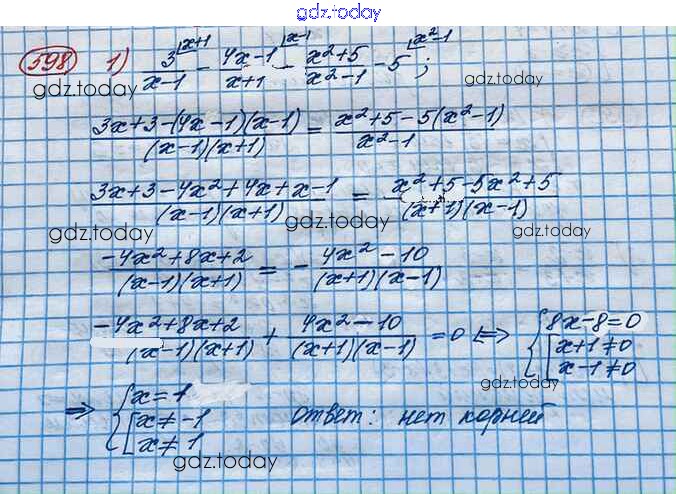 gdz.today
598 1) 3^{⌊x+1}/(x-1) - (4x-1^{⌊x-1})/(x+1) - (x²+5)/(x²-1) - 5^{⌊x²-1};
gdz.today gdz.today
(3x+3-(4x-1)(x-1))/((x-1)(x+1)) = (x²+5-5(x²-1))/(x²-1)
gdz.today
(3x+3-4x²+4x+x-1)/((x-1)(x+1)) = (x²+5-5x²+5)/((x+1)(x-1))
gdz.today gdz.today gdz.today
(-4x²+8x+2)/((x-1)(x+1)) = -(4x²-10)/((x+1)(x-1))
(-4x²+8x+2)/((x-1)(x+1)) + (4x²-10)/((x+1)(x-1)) = 0 ⟺ { 8x-8=0
[ x+1≠0
x-1≠0
gdz.today gdz.today
⟹ { x=1
[ x≠-1 ответ: нет корней
x≠1
gdz.today gdz.today